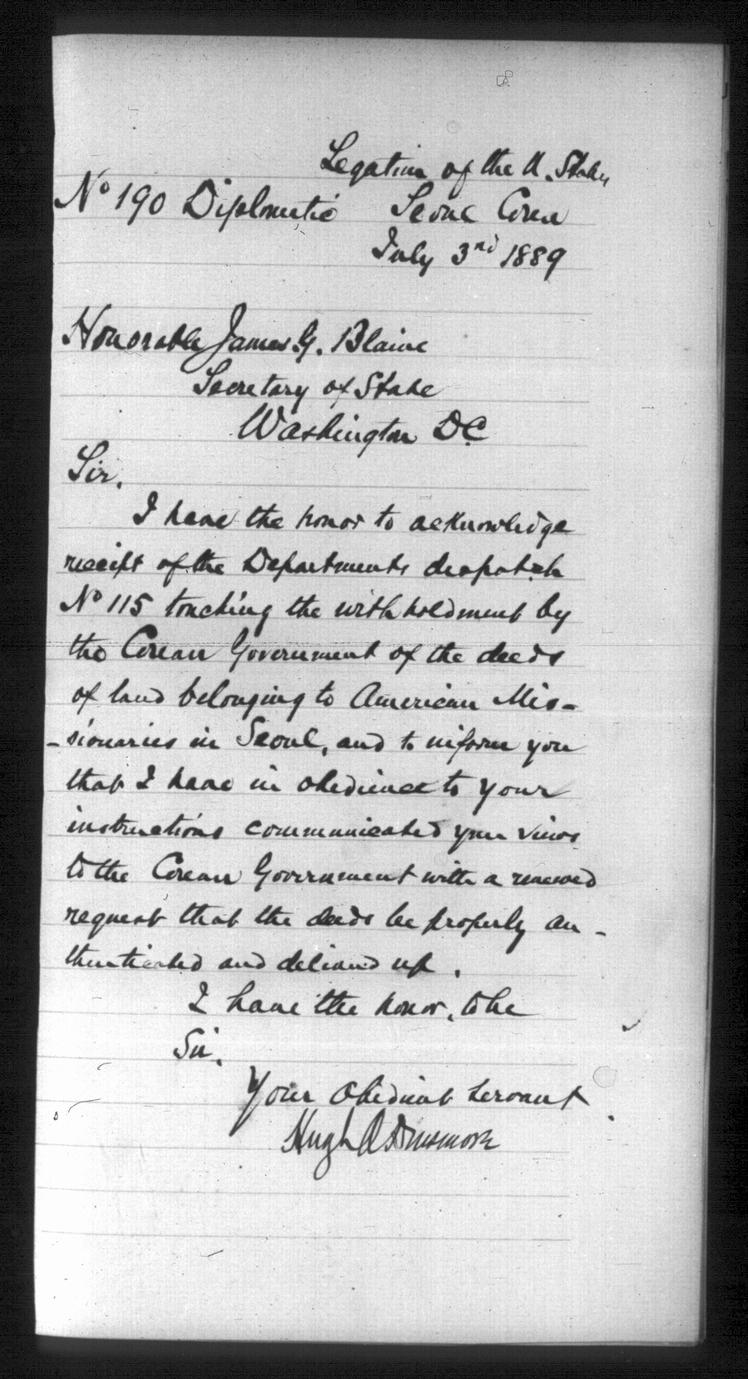 Legation of the U. States
No 190 Diplomatic Seoul Corea
July 3rd 1889
Honorable James G. Blaine
Secretary of State
Washington DC
Sir.
I have the honor to acknowledge
receipt of the Departments despatch
No 115 touching the withholdment by
the Corean Government of the deeds
of land belonging to American Mis-
-sionaries in Seoul, and to inform you
that I have in obedience to your
instructions communicated your views
to the Corean Government with a renewed
request that the deeds be properly au-
thenticated and delivered up.
I have the honor, to be
Sir.
Your obedient servant.
Hugh A Dinsmore